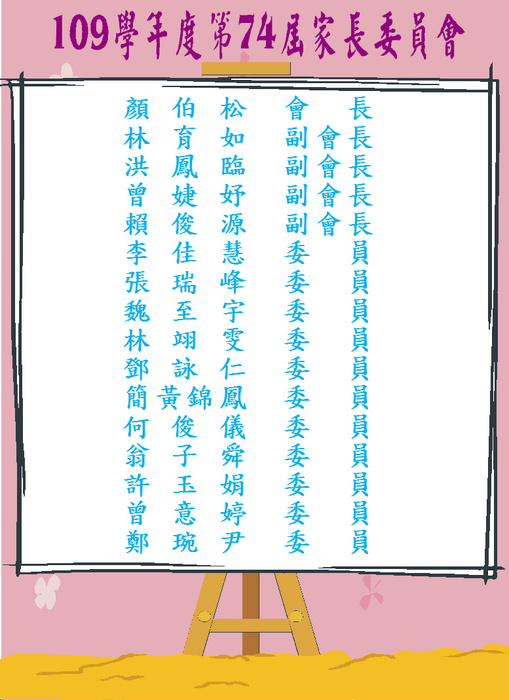 109學年度第74屆家長委員會
顏伯松 會長
林育如 副會長
洪鳳臨 副會長
曾婕妤 副會長
賴俊源 副會長
李佳慧 委員
張瑞峰 委員
魏至宇 委員
林翊雯 委員
鄧詠仁 委員
簡黃錦鳳 委員
何俊儀 委員
翁子舜 委員
許玉娟 委員
曾意婷 委員
鄭琬尹 委員